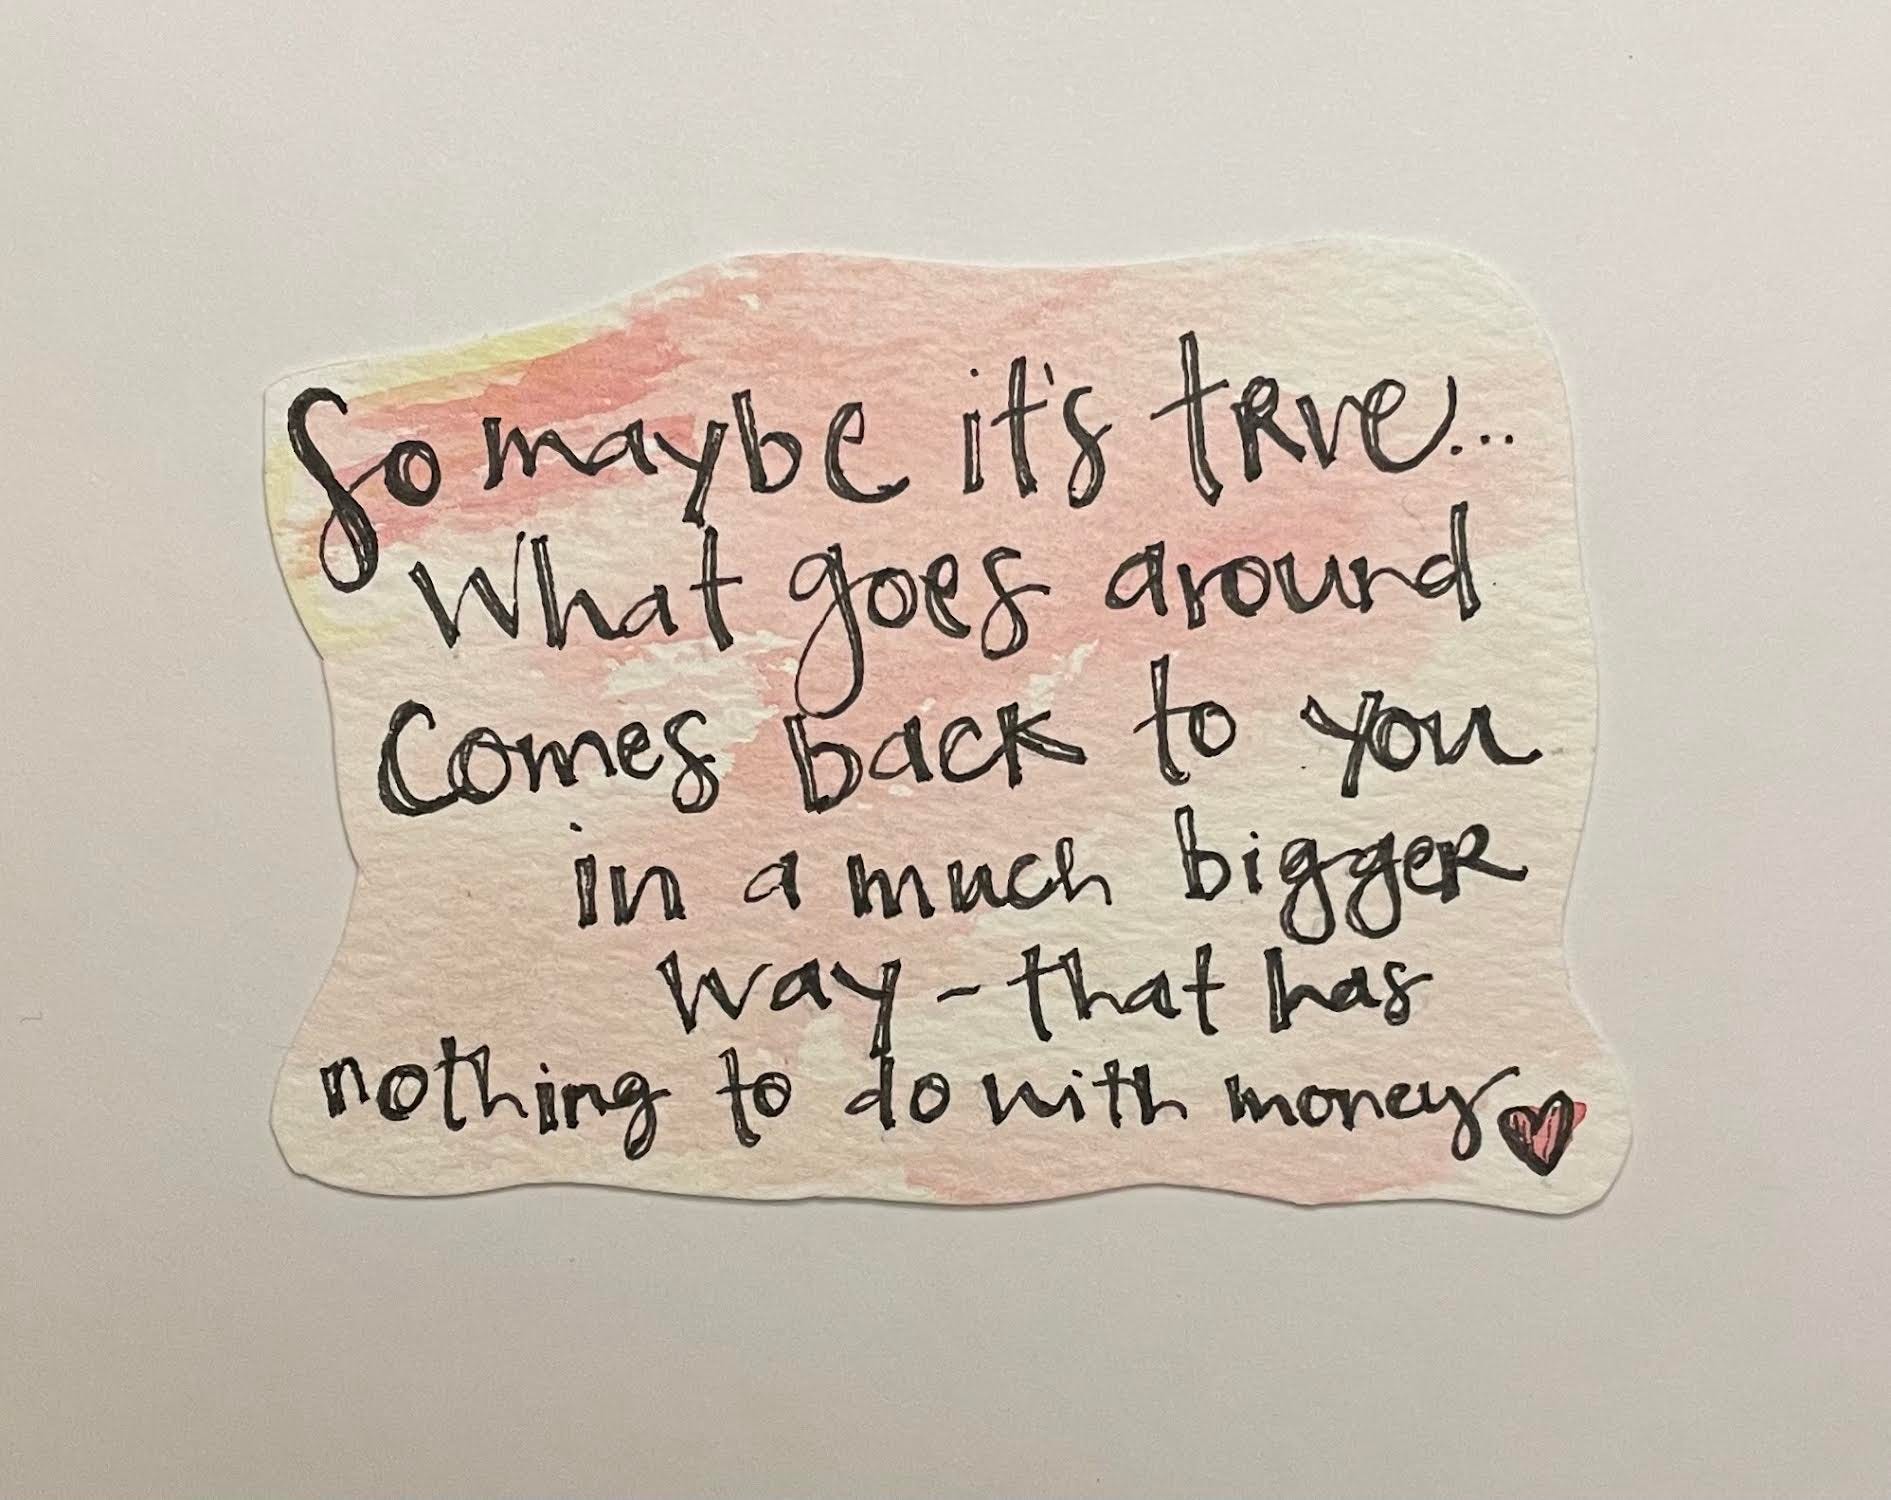 So maybe it's tRue...
What goes around
Comes back to you
in a much biggeR
way - that has
nothing to do with money